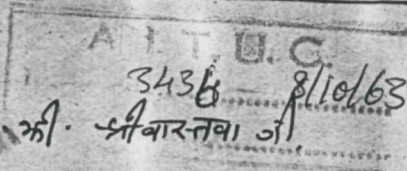 A I T. U. C.
3436 8/10/63
श्री. श्रीवास्तवा जी